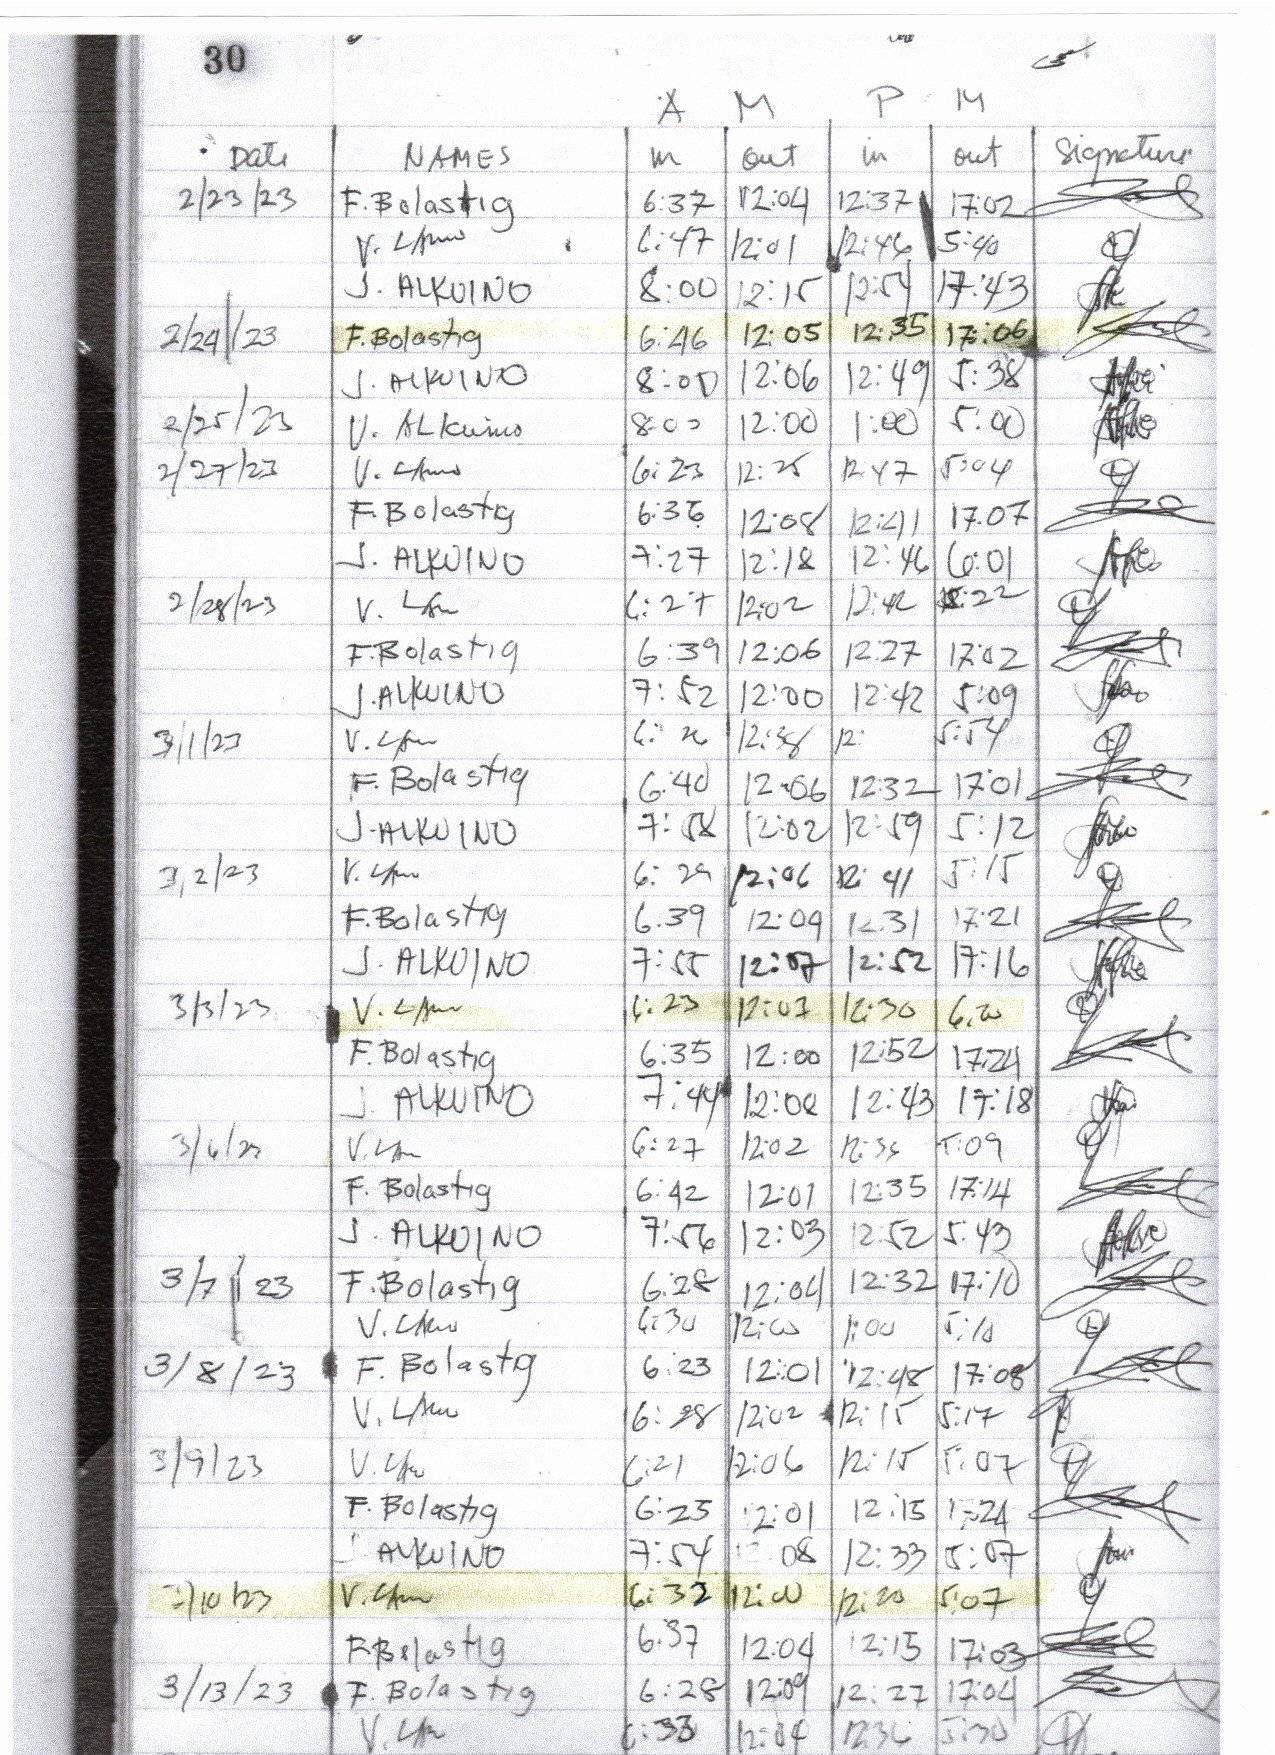 30
A M P M
Date NAMES in out in out Signature
2/23/23 F. Bolastig 6:37 12:04 12:37 17:02
V. 6:47 12:01 12:46 5:40
J. ALKUINO 8:00 12:15 12:54 17:43
2/24/23 F. Bolastig 6:46 12:05 12:35 17:06
J. ALKUINO 8:00 12:06 12:49 5:38
2/25/23 V. ALKuino 8:00 12:00 1:00 5:00
2/27/23 V. 6:23 12:25 12:47 5:04
F. Bolastig 6:36 12:08 12:41 17:07
J. ALKUINO 7:27 12:18 12:46 6:01
2/28/23 V. 6:27 12:02 12:42 :22
F. Bolastig 6:39 12:06 12:27 17:02
J. ALKUINO 7:52 12:00 12:42 5:09
3/1/23 V. 6:26 12:38 12: 5:54
F. Bolastig 6:40 12:06 12:32 17:01
J. ALKUINO 7:58 12:02 12:59 5:12
3/2/23 V. 6:29 12:06 12:41 5:15
F. Bolastig 6:39 12:04 12:31 17:21
J. ALKUINO 7:55 12:07 12:52 17:16
3/3/23 V. 6:23 12:07 12:30
F. Bolastig 6:35 12:00 12:52 17:24
J. ALKUINO 7:44 12:08 12:43 17:18
3/6/23 V. 6:27 12:02 5:09
F. Bolastig 6:42 12:01 12:35 17:14
J. ALKUINO 7:56 12:03 12:52 5:43
3/7/23 F. Bolastig 6:28 12:04 12:32 17:10
V. 6:30 12:00 1:00 5:10
3/8/23 F. Bolastig 6:23 12:01 12:48 17:08
V. 6:28 12:02 12:15 5:17
3/9/23 V. 6:21 12:06 12:15 5:07
F. Bolastig 6:25 12:01 12:15 17:24
J. ALKUINO 7:54 12:08 12:33 5:07
3/10/23 V. 6:32 12:00 12:20 5:07
F. Bolastig 6:37 12:04 12:15 17:03
3/13/23 F. Bolastig 6:28 12:09 12:27 17:04
V. 6:33 12:04 12:36 5:30